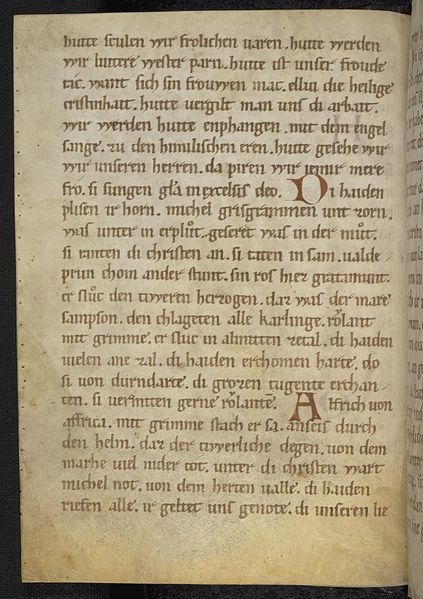 hutte sculen wir frolichen uaren. hutte werden
wir luttere wester parn. hutte ist unser froude
tac. want sich sin frouwen mac. elliu die heilige
cristinhait. hutte uergilt man uns di arbait.
wir werden hutte enphangen. mit dem engel
sange. zu den himilischen eren. hutte gesehe wir
wir unseren herren. da piren wir iemir mere
fro. si sungen gla in excelsis deo. Di haiden
plisen ir horn. michel grisgrammen unt zorn.
was unter in erplůt. geseret was in der můt.
si ranten di christen an. si taten in sam. ualde-
prun chom ander stunt. sin ros hiez gratamunt.
er slůc den tiweren herzogen. daz was der mare
sampson. den chlageten alle karlinge. růlant
mit grimme. er sluc in almitten zetal. di haiden
uielen ane zal. di haiden erchomen harte. do
si von durndarte. di grozen tugente erchan-
ten. si uermiten gerne růlanten. Alfrich von
affrica. mit grimme stach er sa. anseis durch
den helm. daz der tiwerliche degen. von dem
marhe uiel nider tot. unter di christen wart
michel not. von dem herten ualle. di haiden
riefen alle. ir geltet uns genote. di unseren lie